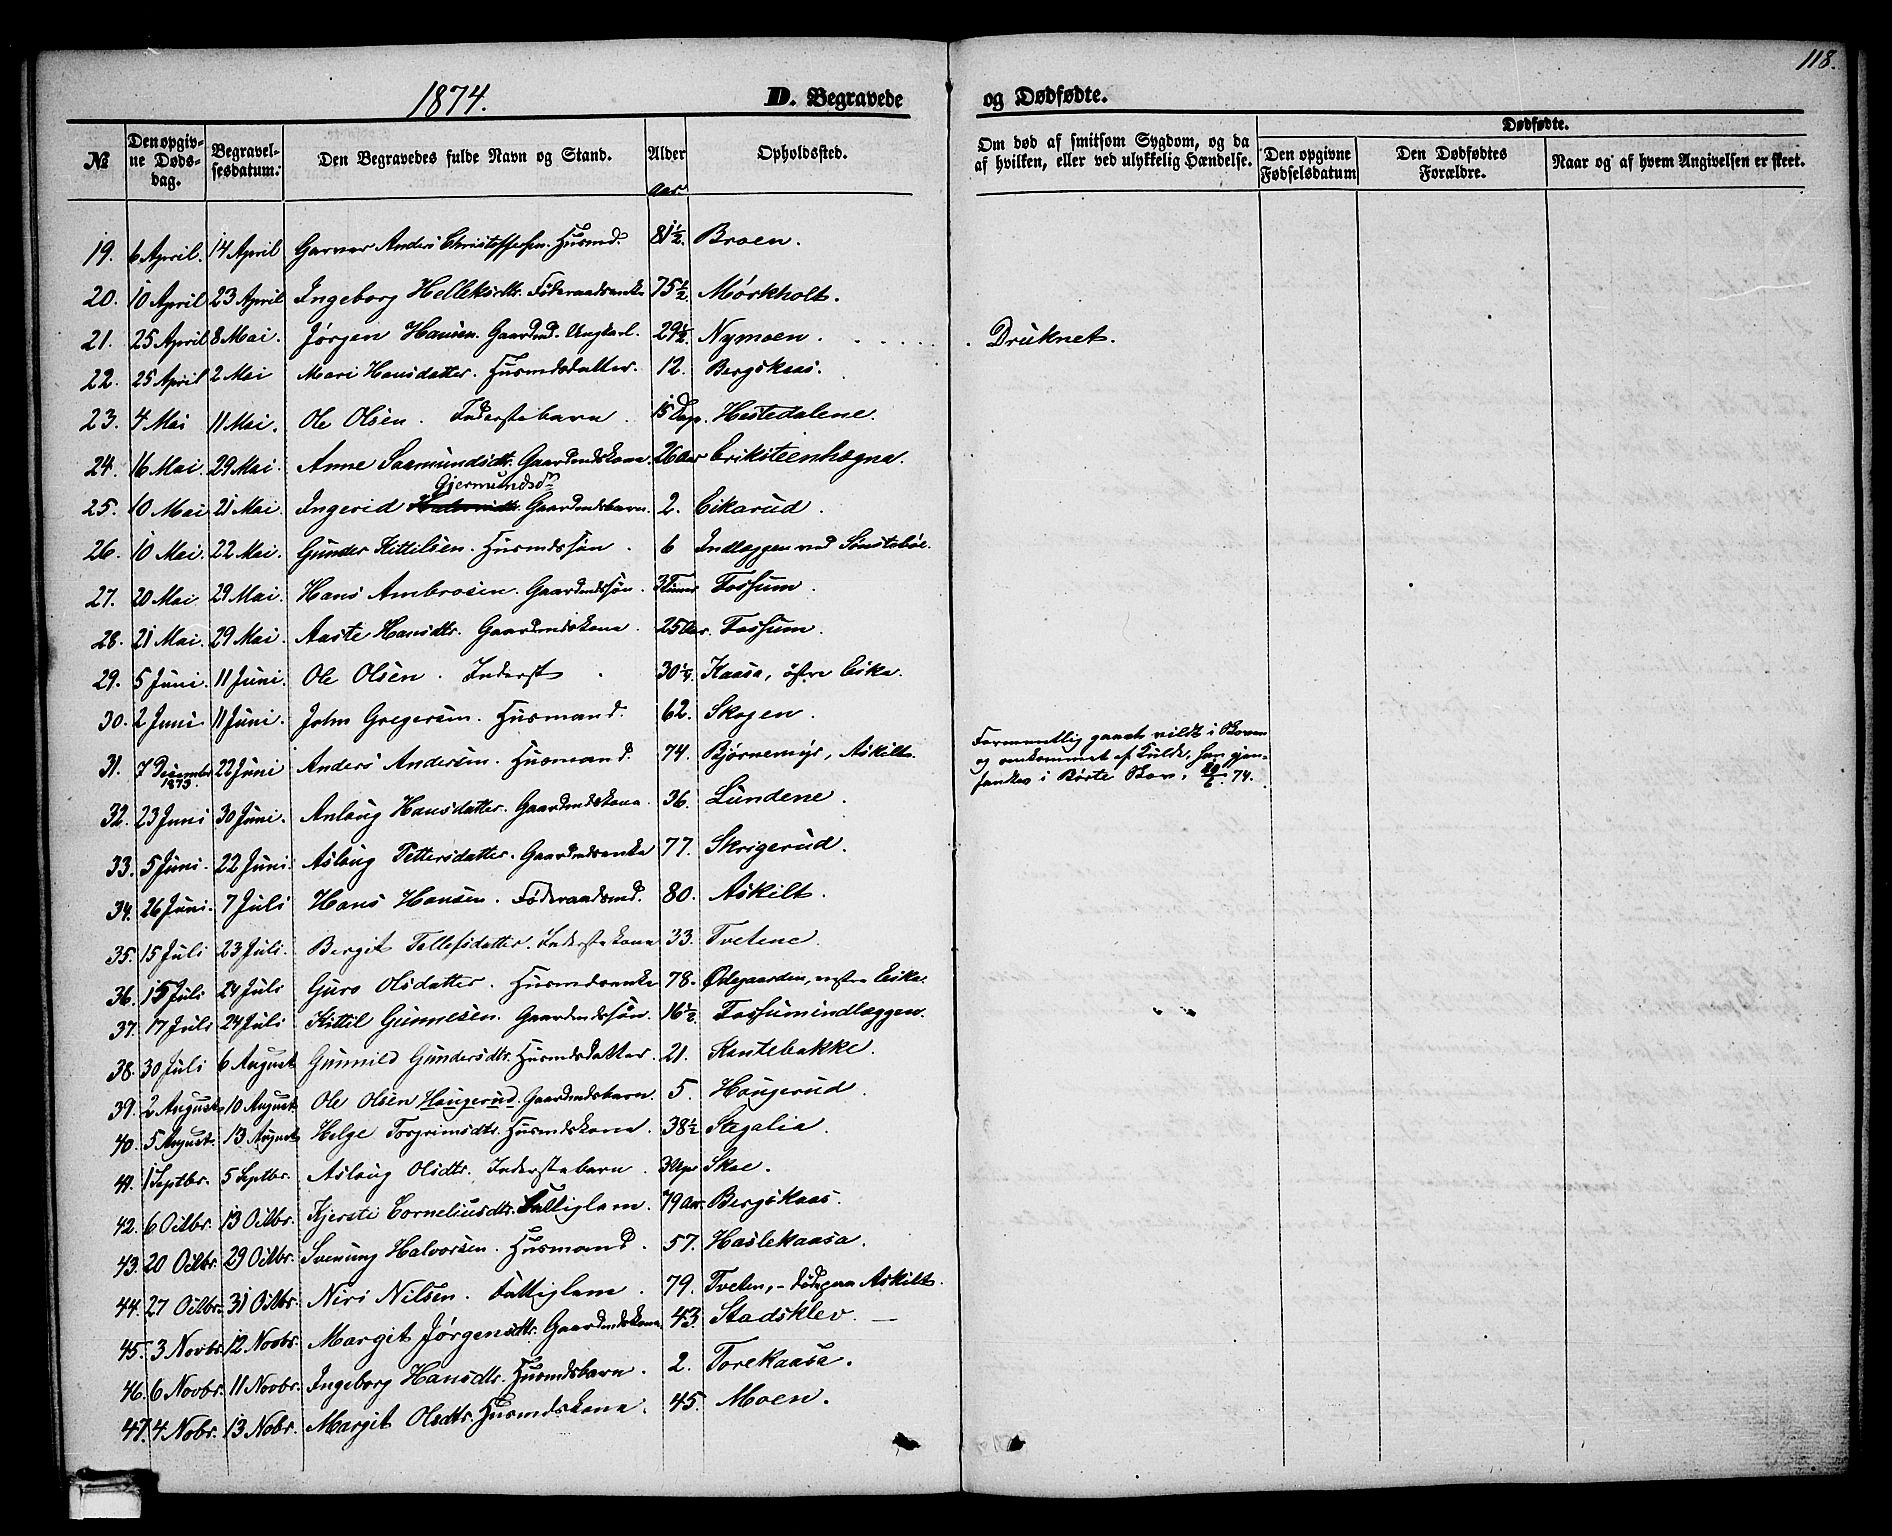 118.
1874.
D. Begravede
og Dødfødte.
№
Den opgivne Dødsdag.
Begravelsesdatum.
Den Begravedes fulde Navn og Stand.
Alder
Aar
Opholdssted.
Om død af smitsom Sygdom, og da af hvilken, eller ved ulykkelig Hændelse.
Dødfødte.
Den opgivne Fødselsdatum
Den Dødfødtes Forældre.
Naar og af hvem Angivelsen er skeet.
19. 6 April. 14 April Garver Anders Christoffersen. Husmd. 81½. Broen.
20. 10 April 23 April Ingeborg Helleksdtr. Føderaadsenke 75½ Mørkholt.
21. 25 April 8 Mai. Jørgen Hansen. Gaardmd. Ungkarl. 29½. Nymoen. Druknet.
22. 25 April 2 Mai Mari Hansdatter. Husmdsdatter. 12. Bergskaas.
23. 4 Mai 11 Mai. Ole Olsen. Inderstebarn. 15 Dage. Hestedalene.
24. 16 Mai 29 Mai. Anne Saamundsdtr. Gaardmdskone. 26 Aar Eriksteenhøgna.
Gjermundsdr
25. 10 Mai 21 Mai. Ingerid Gaardmdsbarn. 2. Eikarud.
26. 10 Mai. 22 Mai. Gunder Kittilsen. Husmdssøn. 6 Indlæggen ved Sønstebøe.
27. 20 Mai 29 Mai. Hans Ambrosen. Gaardmdssøn. 3 Timer Fossum.
28. 21 Mai. 29 Mai. Aaste Hansdtr. Gaardmdskone. 25 Aar. Fossum.
29. 5 Juni. 11 Juni. Ole Olsen. Inderst. 30¼. Kaasa, østre Eika.
30. 2 Juni. 11 Juni. John Gregersen. Husmand. 62. Skogen.
31. 7 December 1873. 22 Juni Anders Andersen. Husmand. 74. Bjørnemyr, Askilt. Formentlig gaaet vildt i Skoven
og omkommet af Kulde, han gjen-
fandtes i Børte Skov, 74.
32. 23 Juni 30 Juni. Anlaug Hansdatter. Gaardmdskone. 36. Lundene.
33. 5 Juni. 22 Juni. Aslaug Pettersdatter. Gaardmdsenke 77. Skrigerud.
34. 26 Juni. 7 Juli Hans Hansen. Føderaadsmd. 80. Askilt.
35. 15 Juli 23 Juli. Bergit Tellefsdatter. Inderstekone 33. Tvetene.
36. 15 Juli 24 Juli Guro Olsdatter. Husmdsenke 78. Ødegaarden, vestre Eika.
37. 17 Juli 24 Juli Kittil Gunnesen. Gaardmdssøn. 16½. Fossumindlæggen.
38. 30 Juli 6 August Gunnild Gundersdtr. Husmdsdatter. 21. Kantebakke.
39. 2 August 10 August Ole Olsen Haugerud. Gaardmdsbarn. 5. Haugerud.
40. 5 August. 13 August Helge Torgrimsdtr. Husmdskone. 38½ Stegalia.
41. 1 Septbr. 5 Septbr. Aslaug Olsdtr. Inderstebarn. Skoe.
42. 6 Octbr. 13 Octbr. Kjersti Corneliusdtr. Fattiglem. 79 Aar. Bergskaas.
43. 20 Octbr. 29 Octbr. Svenung Halvorsen. Husmand. 57. Haslekaasa.
44. 27 Octbr. 31 Octbr. Niri Nilsen. Fattiglem. 79. Tveten, – døde paa Askilt.
45. 3 Novbr. 12 Novbr. Margit Jørgensdtr. Gaardmdskone. 43. Stadsklev.
46. 6 Novbr. 11 Novbr. Ingeborg Hansdtr. Husmdsbarn. 2. Torekaasa.
47. 4 Nobr. 13 Nobr. Margit Olsdtr. Husmdskone. 45. Moen.